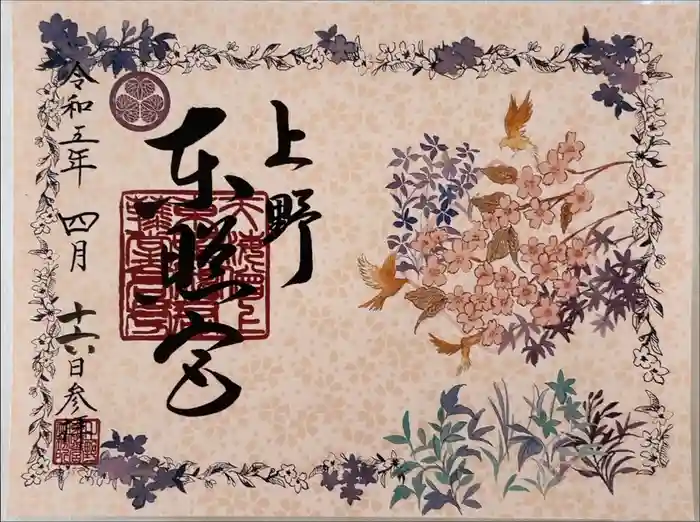 上野
东照宮
令和五年 四月 十六日 参拝